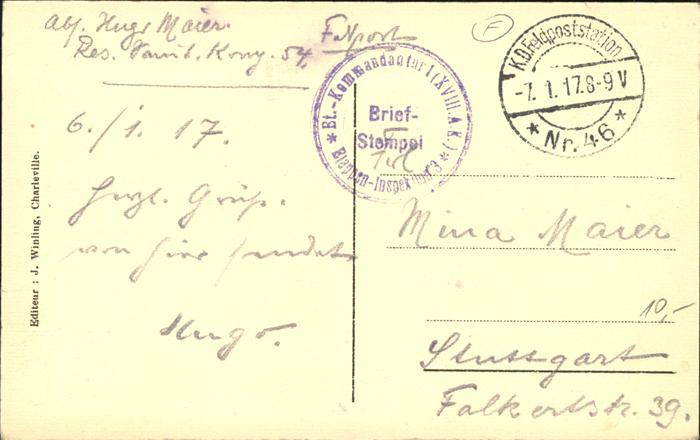 Abs. Hugo Maier.
Res. Sanit. Komp. 54.
Feldpost
F
6./1. 17.
Herzl. Grüße.
von hier sendet
Hugo.
Editeur : J. Winling, Charleville.
* Et.-Kommandantur 1 (XVIII. A.K.) *
Brief-
Stempel
Etappen-Inspektion 3
K.D.Feldpoststation
-7. 1. 17.8-9 V
* Nr. 46 *
Mina Maier
10,-
Stuttgart
Falkertstr. 39.